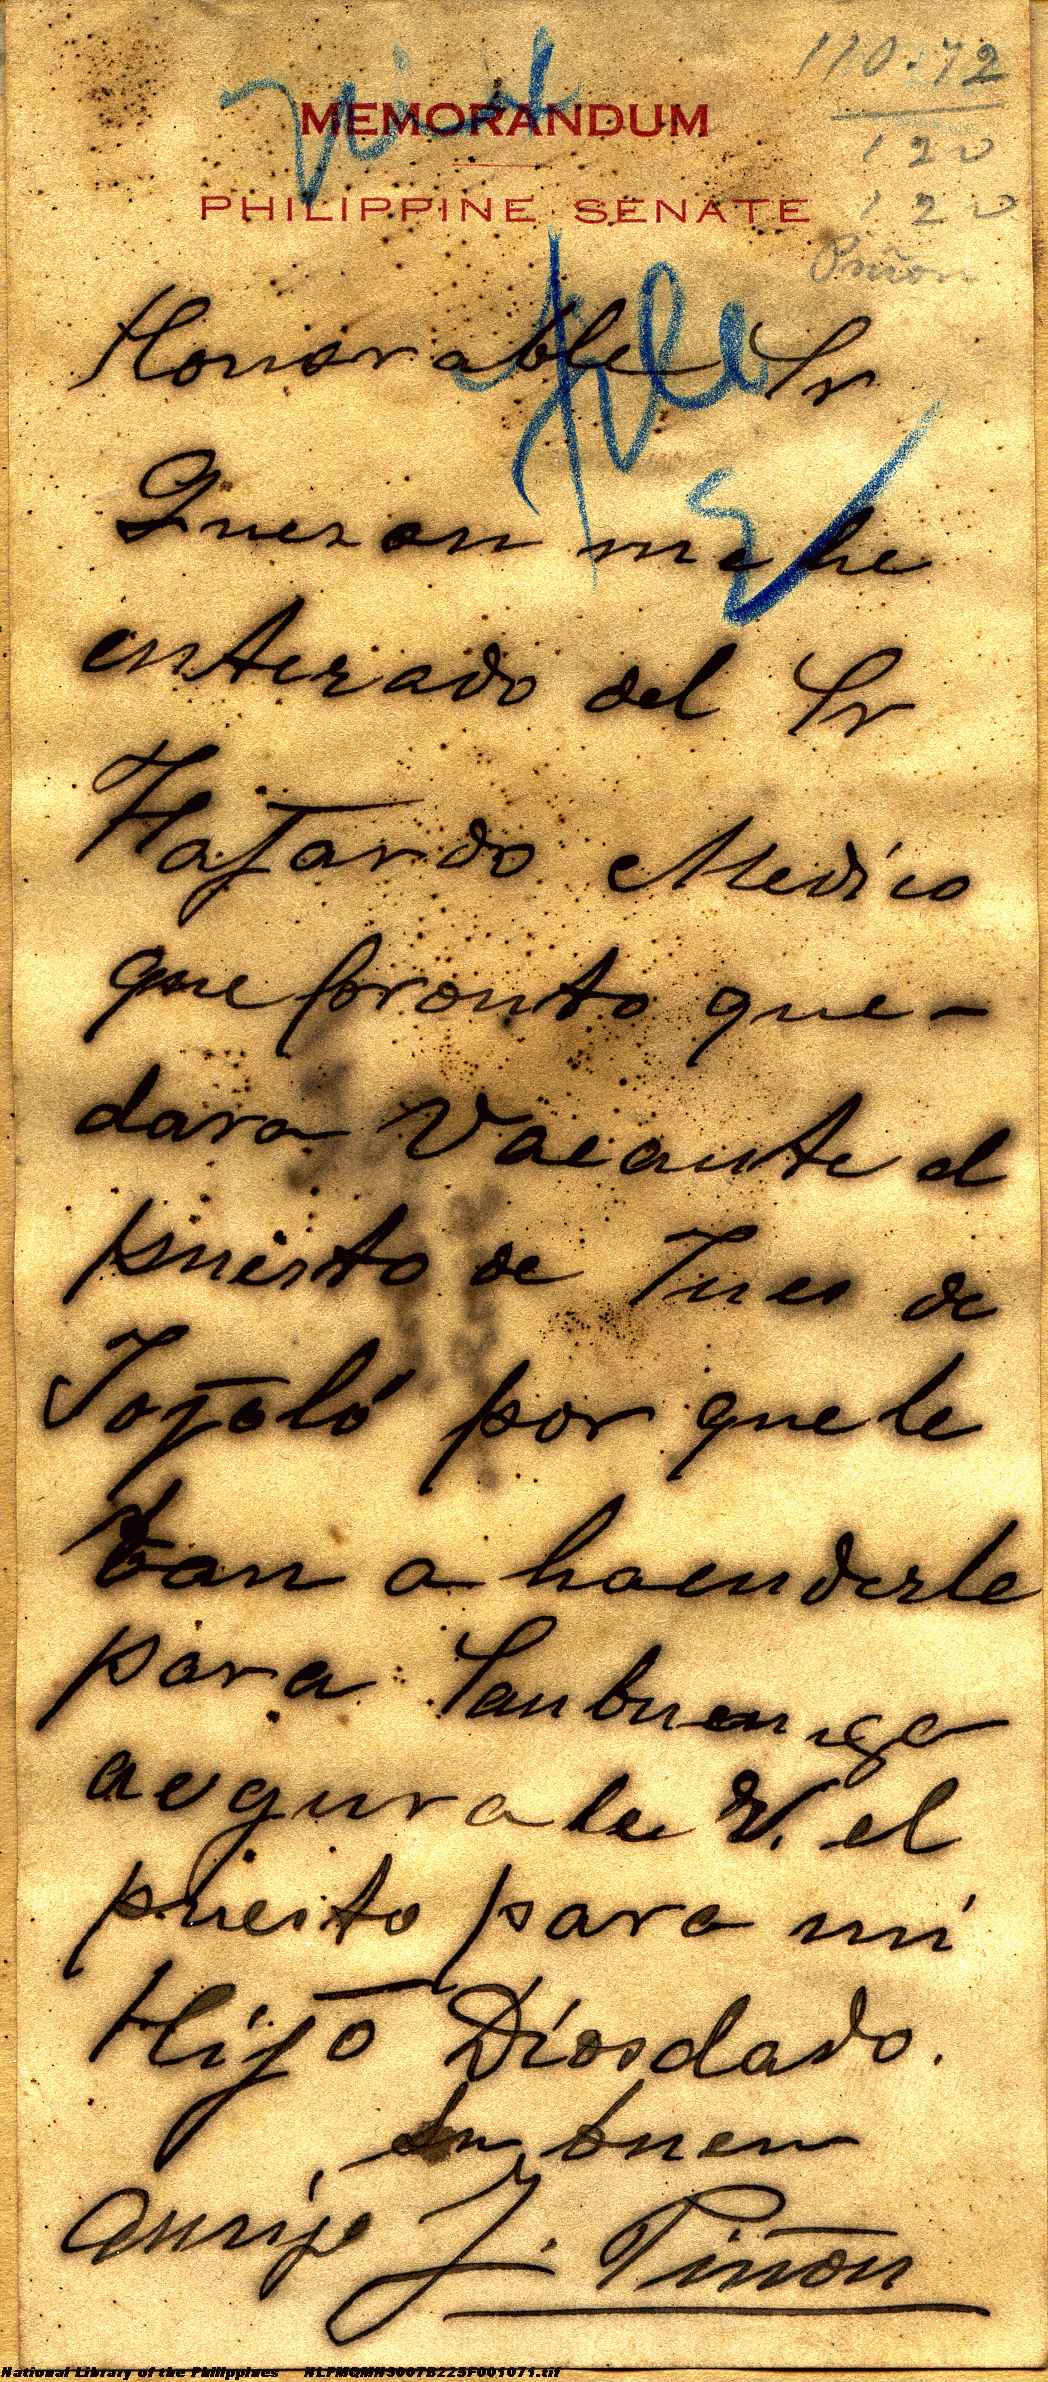 110.72
120
120
Piñon
MEMORANDUM
PHILIPPINE SENATE
File
Honorable Sr
Quezon me he
enterado del Sr
Hafardo Medico
que pronto que-
dara Vacante el
puesto de Jues de
Jojoló por que le
ban a haenderle
para Sanbuenga
asegurale V. el
puesto para mi
Hijo Diosdado.
Su buen
Amigo J. Piñon
National Library of the Philippines NLPMQMNS007B225F001071.tif